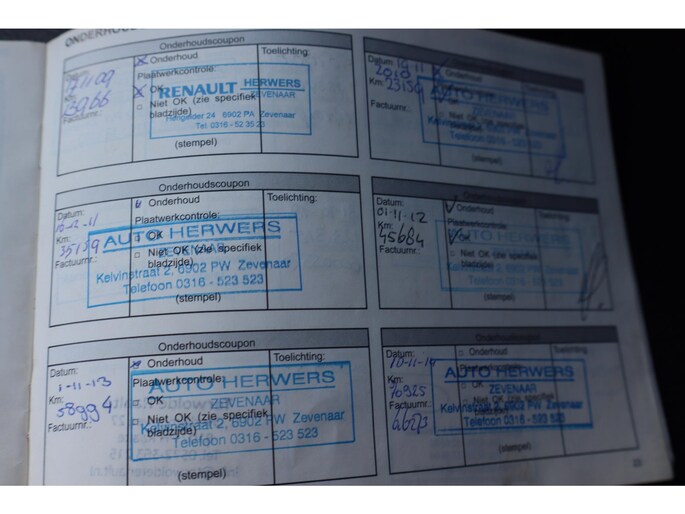 Onderhoudscoupon
Onderhoud
Toelichting:
Plaatwerkcontrole:
Km:
OK
13966
Niet OK (zie specifiek
bladzijde)
Factuurnr.:
RENAULT HERWERS
ZEVENAAR
Hengelder 24 6902 PA Zevenaar
Tel: 0316 - 52 35 23
(stempel)
Onderhoudscoupon
Datum:
19-11
2010
Km:
23159
Factuurnr.:
AUTO HERWERS
ZEVENAAR
Kelvinstraat 2, 6902 PW Zevenaar
Telefoon 0316 - 523 523
(stempel)
Onderhoudscoupon
Datum:
Onderhoud
Toelichting:
Plaatwerkcontrole:
Km:
35189
OK
Niet OK (zie specifiek
bladzijde)
Factuurnr.:
AUTO HERWERS
ZEVENAAR
Kelvinstraat 2, 6902 PW Zevenaar
Telefoon 0316 - 523 523
(stempel)
Onderhoudscoupon
Datum:
01-11-12
Onderhoud
Toelichting:
Plaatwerkcontrole:
Km:
45684
OK
Niet OK (zie specifiek
bladzijde)
Factuurnr.:
AUTO HERWERS
(stempel)
Onderhoudscoupon
Datum:
1-11-13
Onderhoud
Toelichting:
Plaatwerkcontrole:
Km:
58994
OK
Niet OK (zie specifiek
bladzijde)
Factuurnr.:
AUTO HERWERS
ZEVENAAR
Kelvinstraat 2, 6902 PW Zevenaar
Telefoon 0316 - 523 523
(stempel)
Onderhoudscoupon
Datum:
Onderhoud
Km:
70925
OK
Factuurnr.:
AUTO HERWERS
ZEVENAAR
Kelvinstraat 2, 6902 PW Zevenaar
Telefoon 0316 - 523 523
(stempel)